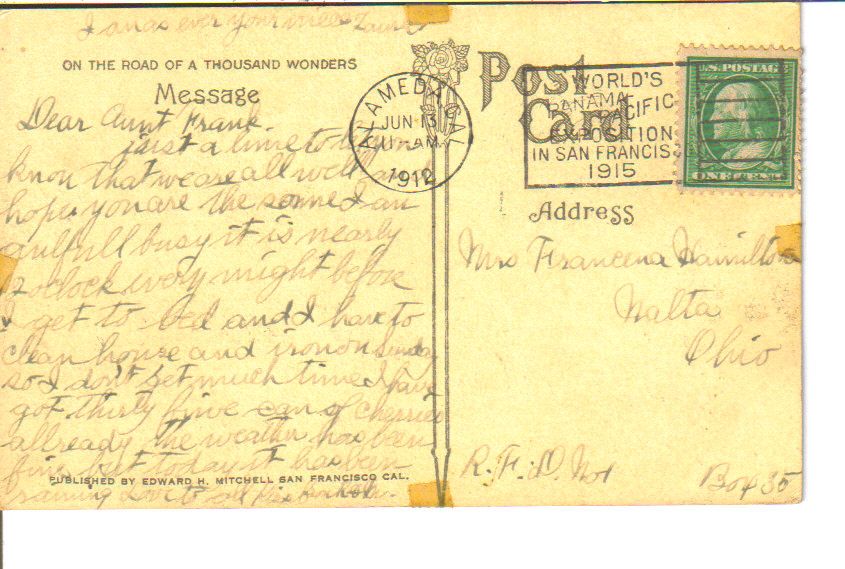 I am as ever your niece Laura
ON THE ROAD OF A THOUSAND WONDERS
Message
Dear Aunt Frank.
just a line to let you
know that we are all well and
hope you are the same I am
aufull busy it is nearly
12 oclock every night before
I get to bed and I have to
clean house and iron on Sunday
so I dont get much time I have
got thirty five can of cherries
allready the weather has been
fine but today it has been
raining Love to all
PUBLISHED BY EDWARD H. MITCHELL SAN FRANCISCO CAL.
Post
Card
ALAMEDA CAL.
JUN 13
11 - AM
1912
WORLD'S
PANAMA-PACIFIC
EXPOSITION
IN SAN FRANCISCO
1915
U.S. POSTAGE
ONE CENT
Address
Mrs Francena Hamilton
Malta
Ohio
R.F.D. No 1
Box 35